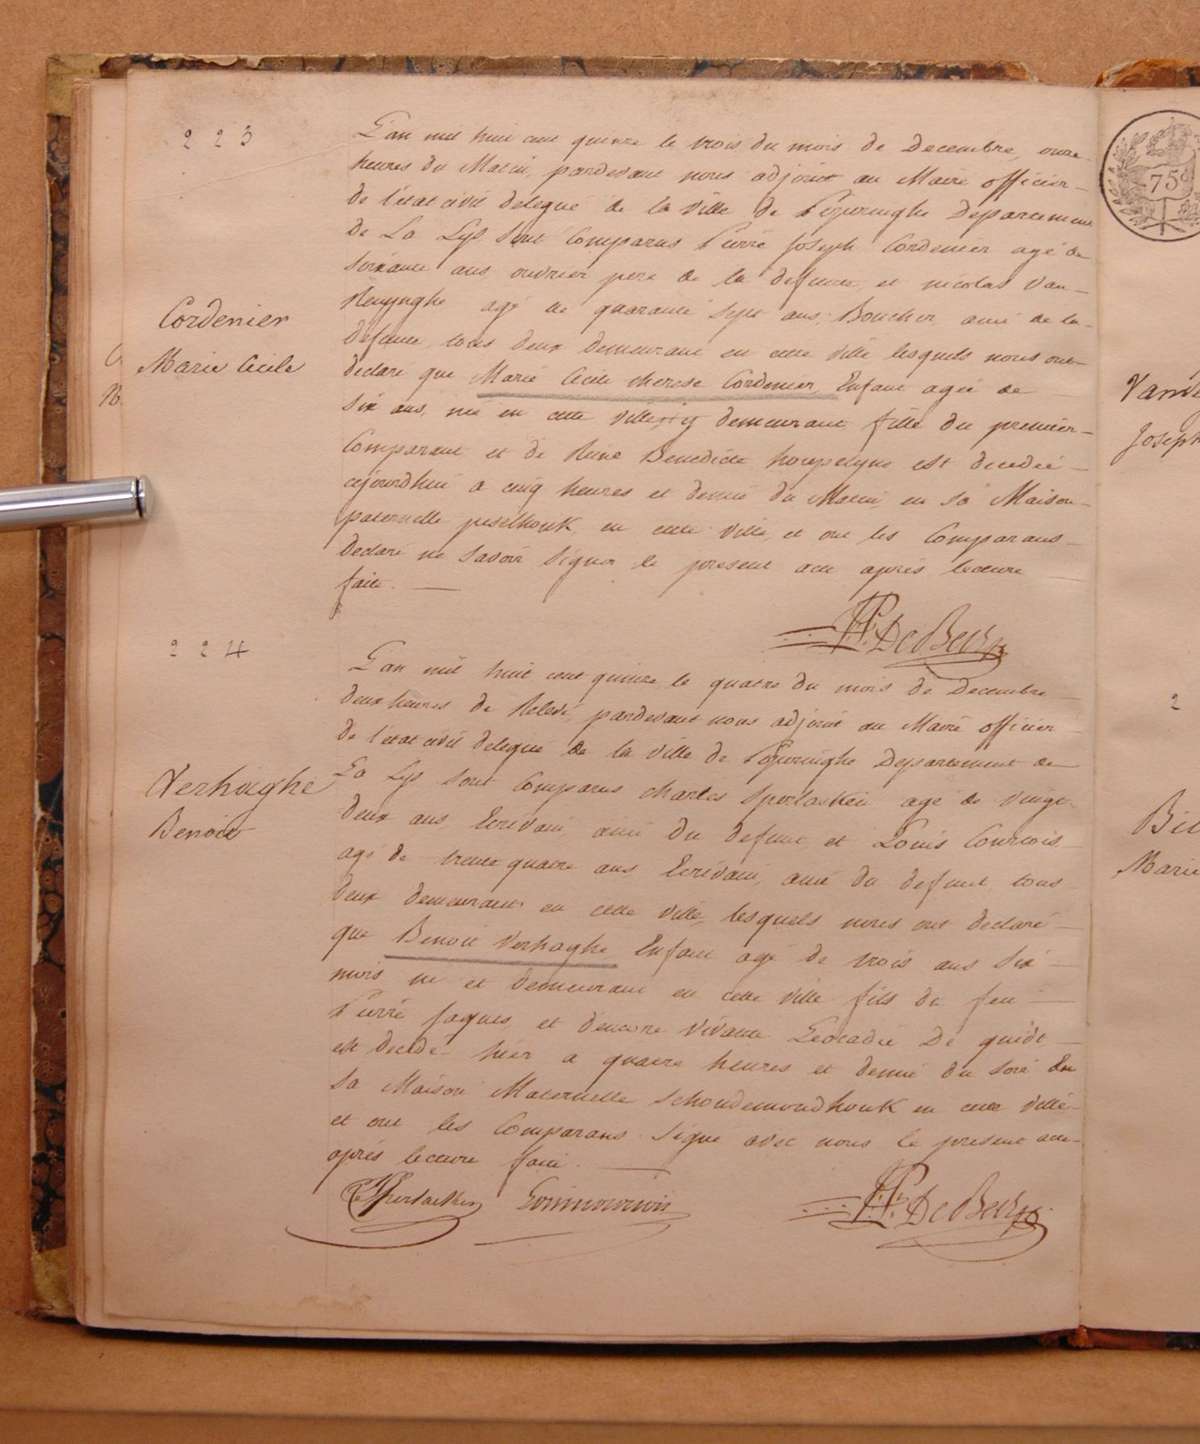 223
L'an mil huit cent quinze le trois du mois de Decembre, onze
heures du Matin, pardevant nous adjoint au Maire officier
de l'état civil delegué de la Ville de Poperinghe Departement
de La Lys sont Comparus Pierre Joseph Cordenier agé de
soixante ans ouvrier pere de la defunte, et nicolas Van
Renynghe agé de quarante sept ans, Boucher ami de la
defunte, tous deux demeurant en cette Ville lesquels nous ont
declaré que Marie Cecile therese Cordenier, Enfant agée de
six ans, née en cette Ville, y demeurant fille du premier
Comparant et de Reine Benedicte est decedée
cejourdhui a cinq heures et demie du Matin, en sa Maison
paternelle peselhouk en cette Ville, et ont les Comparans
Declaré ne Savoir Signer le present acte après lecture
faite.
Cordenier
Marie Cicile
DeBeer
224
L'an mil huit cent quinze, le quatre du mois de Decembre
deux heures de Relevé, pardevant nous adjoint au Maire officier
de l'état civil delegué de la Ville de Poperinghe Departement de
La Lys sont Comparus charles agé de vingt
deux ans Ecrivain, ami du defunt et Louis Courtois
agé de trente quatre ans Ecrivain, ami du defunt tous
deux demeurant en cette Ville, lesquels nous ont declaré
que Benoit Verhaghe Enfant agé de trois ans Six
mois né et demeurant en cette Ville fils de feu
Pierre Jaques, et d'encore Vivante Leocadie De
est decedé hier a quatre heures et demie du soir En
sa Maison Maternelle Schoudemondhouk en cette Ville
et ont les Comparans Signe avec nous le present acte
après lecture faite.
Verhaghe
Benoit
DeBeer
75c
Joseph
2
Marie